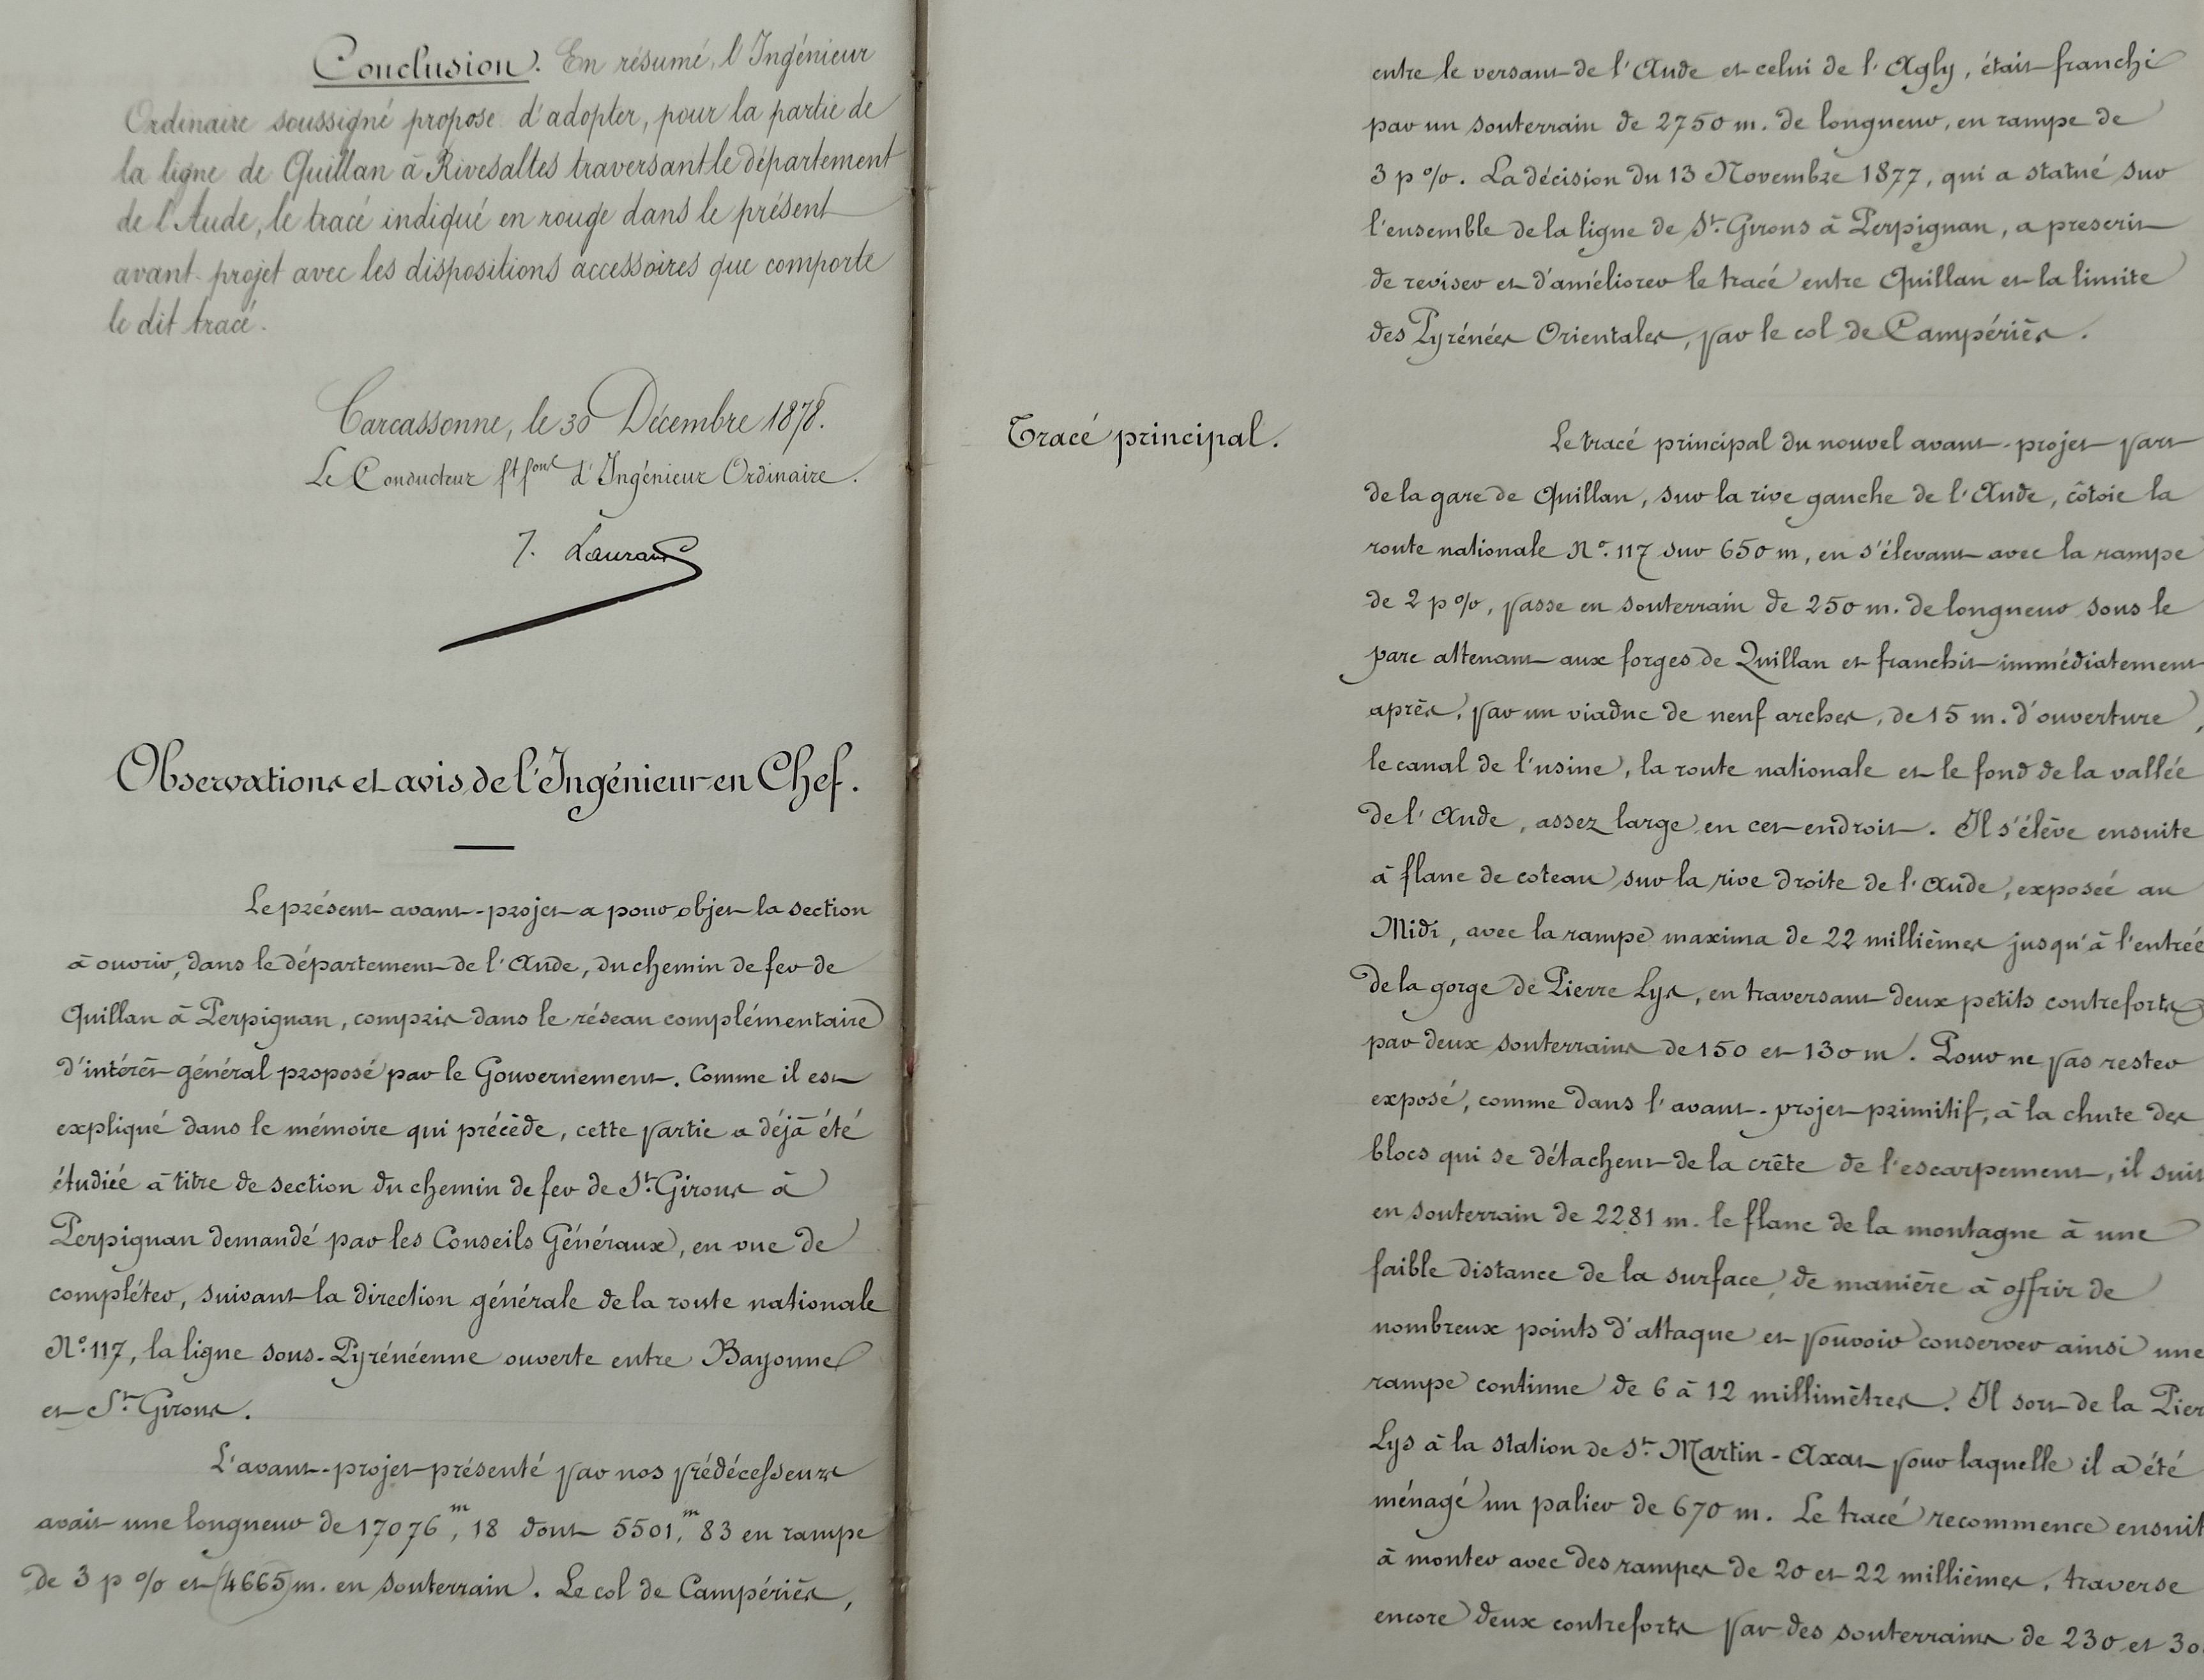 Conclusion. En résumé, l'Ingénieur
Ordinaire soussigné propose d'adopter, pour la partie de
la ligne de Quillan à Rivesaltes traversant le département
de l'Aude, le tracé indiqué en rouge dans le présent
avant-projet avec les dispositions accessoires que comporte
le dit tracé.
Carcassonne, le 30 Décembre 1878.
Le Conducteur ft fons d'Ingénieur Ordinaire.
J. Laurans
Observations et avis de l'Ingénieur en Chef.
Le présent avant-projet a pour objet la section
à ouvrir, dans le département de l'Aude, du chemin de fer de
Quillan à Perpignan, compris dans le réseau complémentaire
d'intérêt général proposé par le Gouvernement. Comme il est
expliqué dans le mémoire qui précède, cette partie a déjà été
étudiée à titre de section du chemin de fer de St. Girons à
Perpignan demandé par les Conseils Généraux, en vue de
compléter, suivant la direction générale de la route nationale
N° 117, la ligne sous-Pyrénéenne ouverte entre Bayonne
et St. Girons.
L'avant-projet présenté par nos prédécesseurs
avait une longueur de 17076m,18 dont 5501m,83 en rampe
de 3 p % et 4665 m. en souterrain. Le col de Campériès,
entre le versant de l'Aude et celui de l'Agly, était franchi
par un souterrain de 2750 m. de longueur, en rampe de
3 p %. La décision du 13 Novembre 1877, qui a statué sur
l'ensemble de la ligne de St. Girons à Perpignan, a prescrit
de reviser et d'améliorer le tracé entre Quillan et la limite
des Pyrénées Orientales, par le col de Campériès.
Tracé principal.
Le tracé principal du nouvel avant-projet part
de la gare de Quillan, sur la rive gauche de l'Aude, côtoie la
route nationale N° 117 sur 650 m, en s'élevant avec la rampe
de 2 p %, passe en souterrain de 250 m. de longueur sous le
parc attenant aux forges de Quillan et franchit immédiatement
après, par un viaduc de neuf arches, de 15 m. d'ouverture,
le canal de l'usine, la route nationale et le fond de la vallée
de l'Aude, assez large en cet endroit. Il s'élève ensuite
à flanc de coteau sur la rive droite de l'Aude, exposée au
Midi, avec la rampe maxima de 22 millièmes jusqu'à l'entrée
de la gorge de Pierre Lys, en traversant deux petits contreforts
par deux souterrains de 150 et 130 m. Pour ne pas rester
exposé, comme dans l'avant-projet primitif, à la chute des
blocs qui se détachent de la crête de l'escarpement, il suit
en souterrain de 2281 m. le flanc de la montagne à une
faible distance de la surface, de manière à offrir de
nombreux points d'attaque et pouvoir conserver ainsi une
rampe continue de 6 à 12 millimètres. Il sort de la Pier
Lys à la station de St. Martin-Axat pour laquelle il a été
ménagé un palier de 670 m. Le tracé recommence ensuit
à monter avec des rampes de 20 et 22 millièmes, traverse
encore deux contreforts par des souterrains de 230 et 30